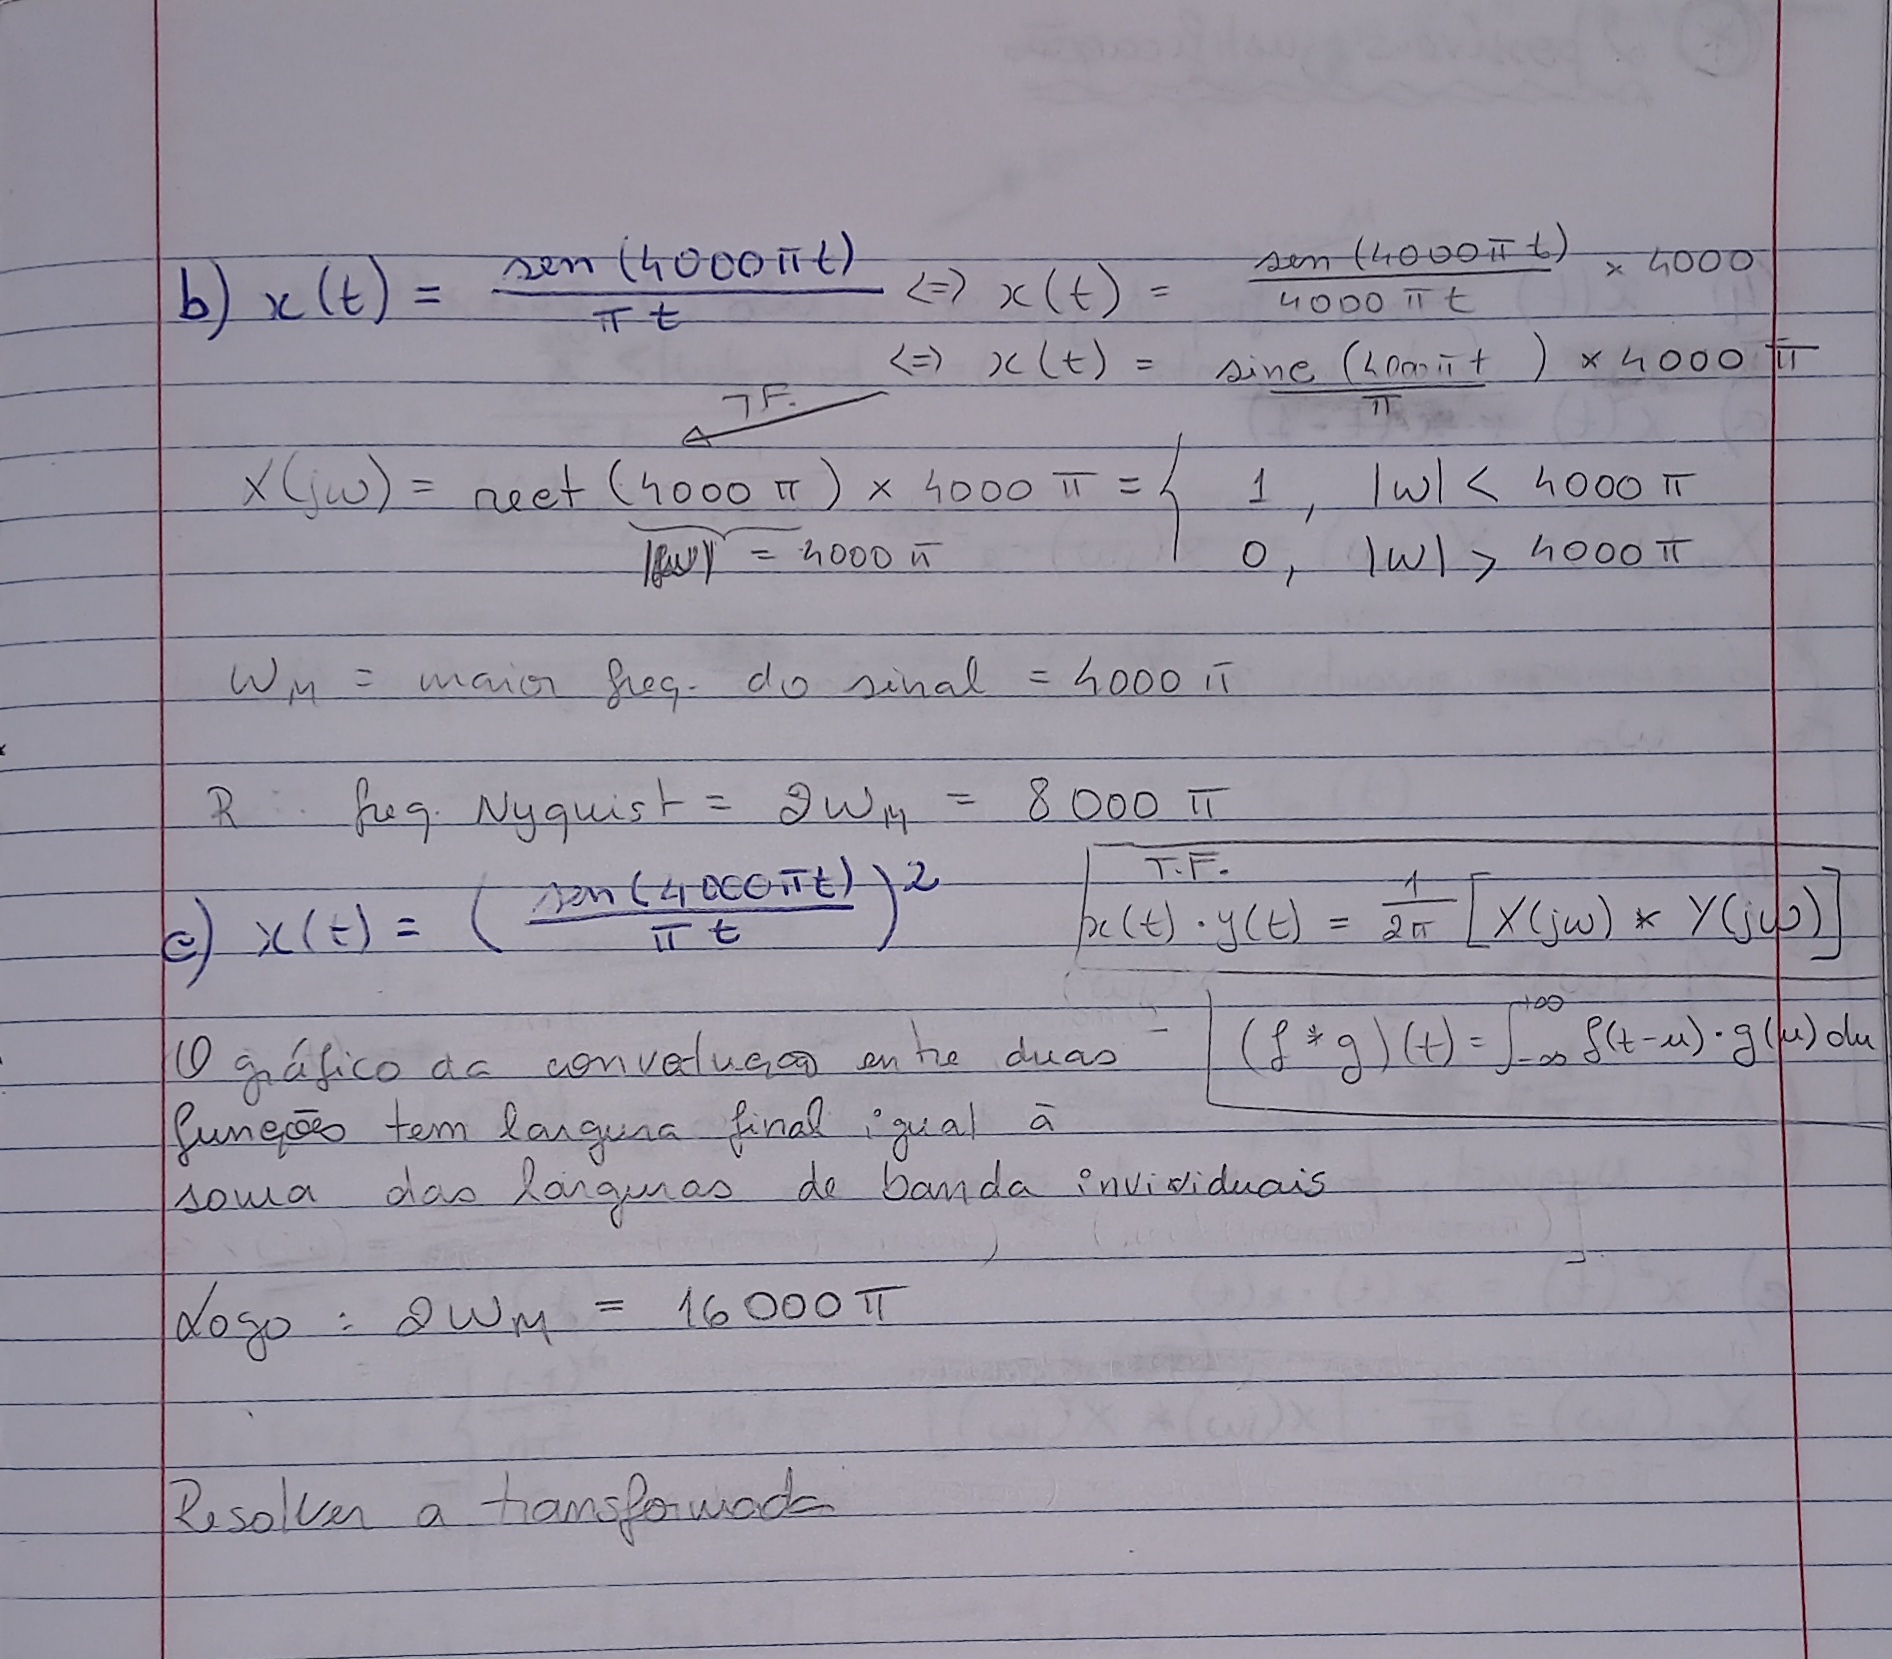 b) x(t) = sen (4000πt) / πt <=> x(t) = sen (4000πt) / 4000πt × 4000
<=> x(t) = sinc (4000πt / π) × 4000 π
T.F.
X(jw) = rect (4000π) × 4000 π = { 1, |w| < 4000 π
= 4000 π 0, |w| > 4000 π
WM = maior freq. do sinal = 4000 π
R ∴ freq. Nyquist = 2WM = 8000 π
c) x(t) = ( sen (4000πt) / πt )²
T.F.
x(t) · y(t) = 1/2π [X(jw) * Y(jw)]
(f * g)(t) = ∫-∞+∞ f(t-u) · g(u) du
O gráfico da convolução entre duas
funções tem largura final igual à
soma das larguras de banda invividuais
Logo : 2WM = 16000 π
Resolver a transformada